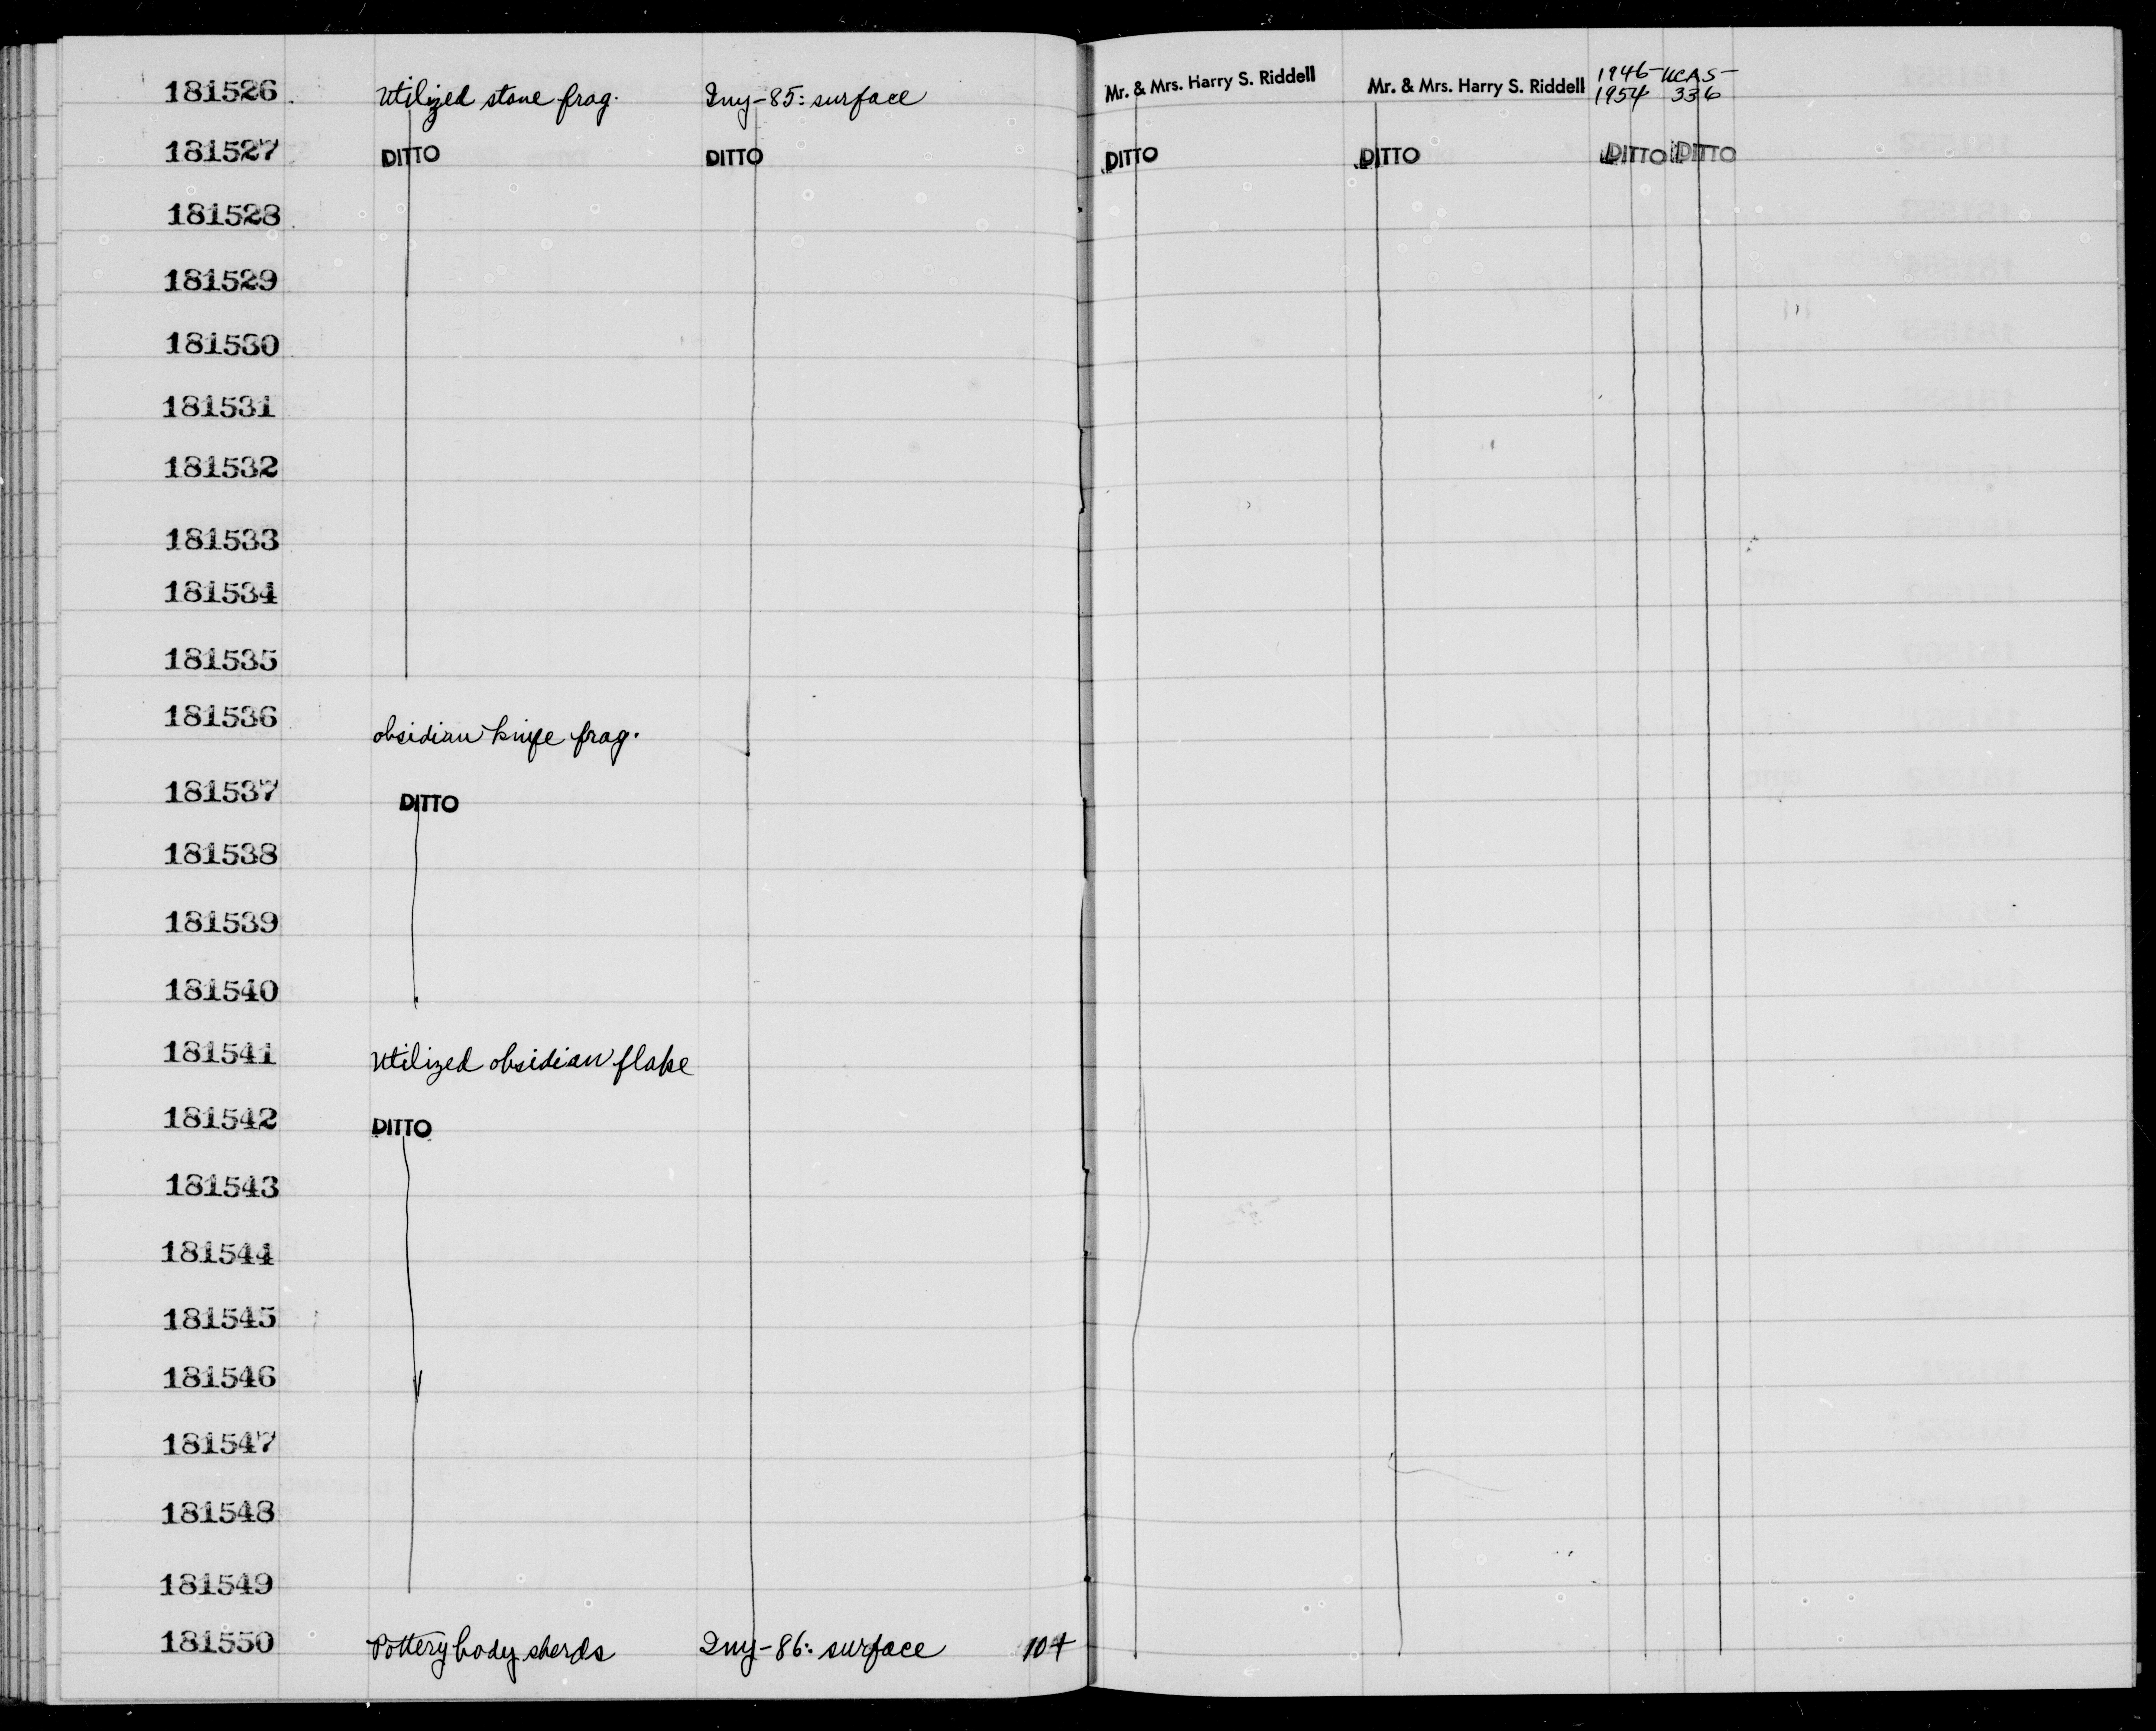 181526 Utilized stone frag. Iny-85: surface Mr. & Mrs. Harry S. Riddell Mr. & Mrs. Harry S. Riddell 1946- UCAS-
1954 336
181527 DITTO DITTO DITTO DITTO DITTO DITTO
181528
181529
181530
181531
181532
181533
181534
181535
181536 obsidian knife frag.
181537 DITTO
181538
181539
181540
181541 Utilized obsidian flake
181542 DITTO
181543
181544
181545
181546
181547
181548
181549
181550 Pottery body sherds Iny-86: surface 104